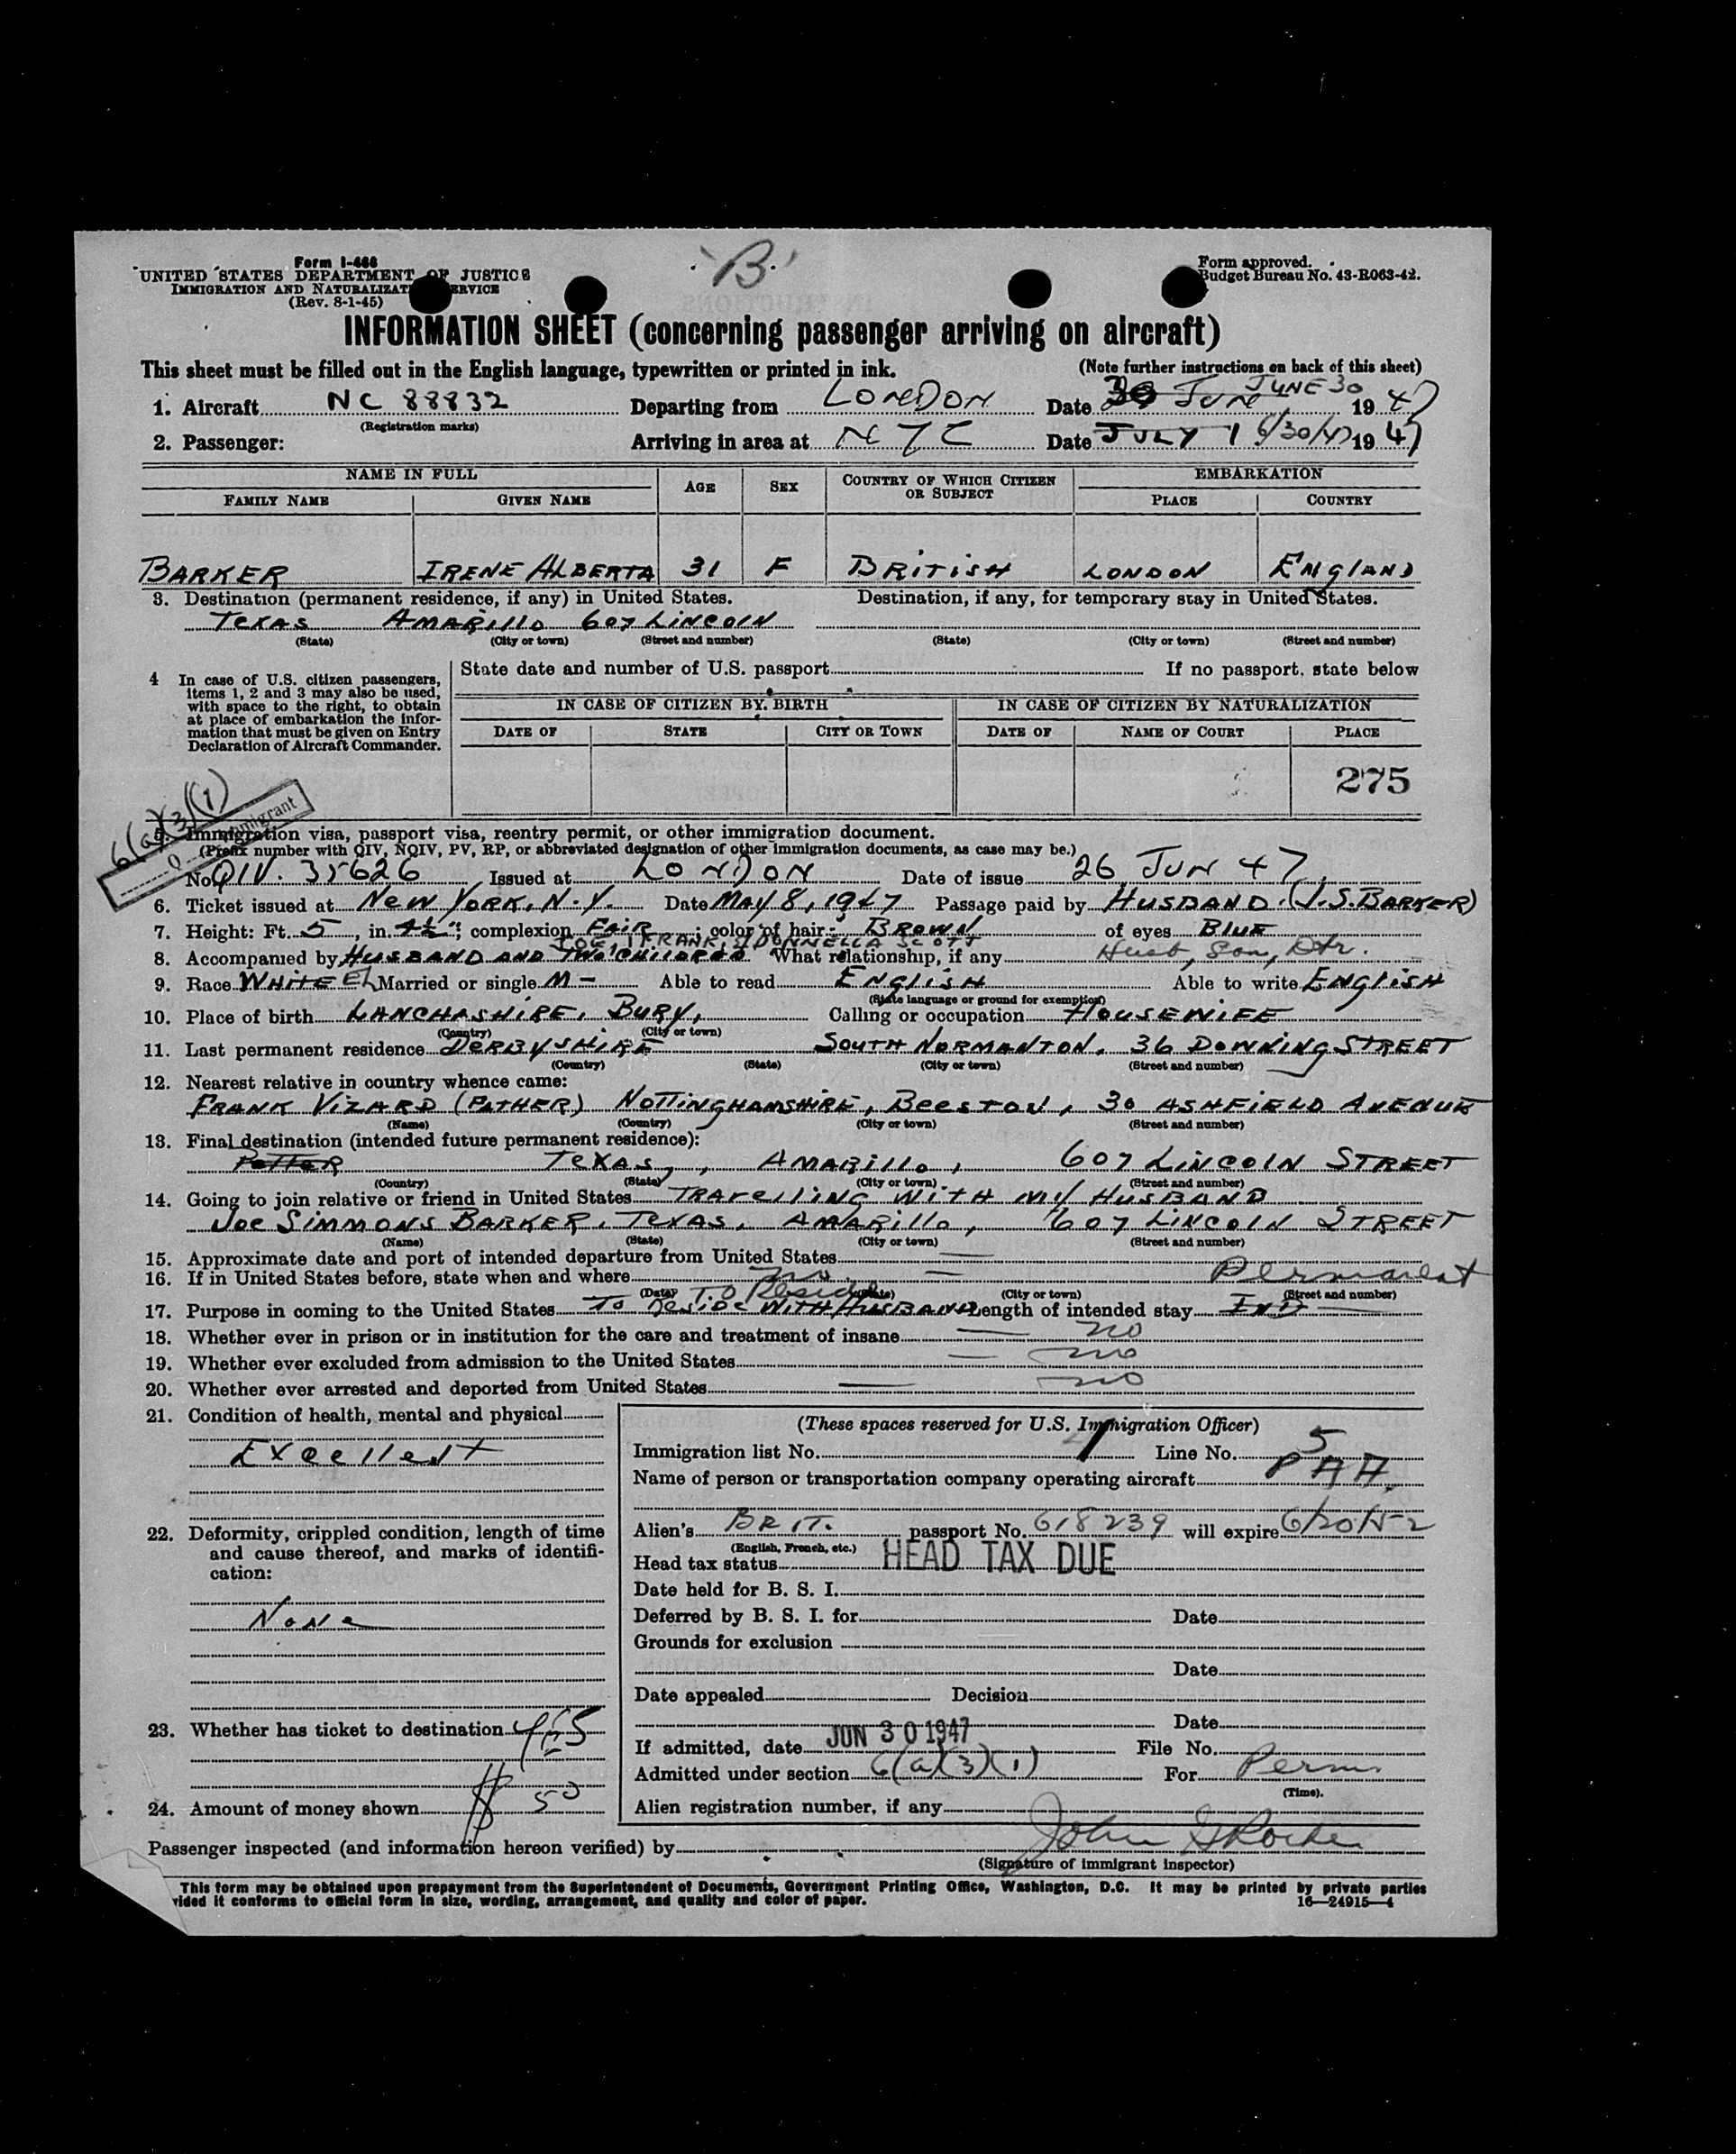 Form I-466
UNITED STATES DEPARTMENT OF JUSTICE
IMMIGRATION AND NATURALIZATION SERVICE
(Rev. 8-1-45)
"B"
Form approved.
Budget Bureau No. 43-R063-42.
INFORMATION SHEET (concerning passenger arriving on aircraft)
This sheet must be filled out in the English language, typewritten or printed in ink.
(Note further instructions on back of this sheet)
1. Aircraft NC 88832 Departing from LONDON Date 30 JUNE JUNE 30 1947
(Registration marks)
2. Passenger: Arriving in area at NYC Date JULY 1 6/30/47 1947
NAME IN FULL AGE SEX COUNTRY OF WHICH CITIZEN OR SUBJECT EMBARKATION
FAMILY NAME GIVEN NAME PLACE COUNTRY
BARKER IRENE ALBERTA 31 F BRITISH LONDON ENGLAND
3. Destination (permanent residence, if any) in United States. Destination, if any, for temporary stay in United States.
TEXAS AMARILLO 607 LINCOLN
(State) (City or town) (Street and number) (State) (City or town) (Street and number)
4 In case of U.S. citizen passengers, items 1, 2 and 3 may also be used, with space to the right, to obtain at place of embarkation the information that must be given on Entry Declaration of Aircraft Commander.
State date and number of U.S. passport If no passport, state below
IN CASE OF CITIZEN BY BIRTH IN CASE OF CITIZEN BY NATURALIZATION
DATE OF STATE CITY OR TOWN DATE OF NAME OF COURT PLACE
275
6(a)(3)(1)
5. Immigration visa, passport visa, reentry permit, or other immigration document.
(Prefix number with QIV, NQIV, PV, RP, or abbreviated designation of other immigration documents, as case may be.)
No. QIV. 35626 Issued at LONDON Date of issue 26 JUN 47
6. Ticket issued at NEW YORK, N.Y. Date MAY 8, 1947 Passage paid by HUSBAND. (J.S. BARKER)
7. Height: Ft. 5, in. 4½"; complexion FAIR; color of hair BROWN of eyes BLUE
JOE, FRANK, & DONNELLA SCOTT
8. Accompanied by HUSBAND AND TWO CHILDREN What relationship, if any Husb, Son, Dtr.
9. Race WHITE E Married or single M - Able to read ENGLISH Able to write ENGLISH
(State language or ground for exemption)
10. Place of birth LANCHASHIRE, BURY, Calling or occupation HOUSEWIFE
(Country) (City or town)
11. Last permanent residence DERBYSHIRE SOUTH NORMANTON, 36 DOWNING STREET
(Country) (State) (City or town) (Street and number)
12. Nearest relative in country whence came:
FRANK VIZARD (FATHER) NOTTINGHAMSHIRE, BEESTON, 30 ASHFIELD AVENUE
(Name) (Country) (City or town) (Street and number)
13. Final destination (intended future permanent residence):
POTTER TEXAS, AMARILLO, 607 LINCOLN STREET
(Country) (State) (City or town) (Street and number)
14. Going to join relative or friend in United States TRAVELLING WITH MY HUSBAND
JOE SIMMONS BARKER, TEXAS, AMARILLO, 607 LINCOLN STREET
(Name) (State) (City or town) (Street and number)
15. Approximate date and port of intended departure from United States —
16. If in United States before, state when and where no — Permanent
(Date) (State) (City or town) (Street and number)
To Reside
17. Purpose in coming to the United States TO RESIDE WITH HUSBAND Length of intended stay IND —
18. Whether ever in prison or in institution for the care and treatment of insane — no
19. Whether ever excluded from admission to the United States — no
20. Whether ever arrested and deported from United States — no
21. Condition of health, mental and physical
Excellent
22. Deformity, crippled condition, length of time and cause thereof, and marks of identification:
None
23. Whether has ticket to destination YES
24. Amount of money shown $ 50
(These spaces reserved for U.S. Immigration Officer)
Immigration list No. 1 Line No. 5
Name of person or transportation company operating aircraft PAA.
Alien's BRIT. passport No. 618239 will expire 6/20/52
(English, French, etc.)
Head tax status HEAD TAX DUE
Date held for B. S. I.
Deferred by B. S. I. for Date
Grounds for exclusion
Date
Date appealed Decision
Date
If admitted, date JUN 30 1947 File No.
Admitted under section 6(a)(3)(1) For Perm.
(Time).
Alien registration number, if any
Passenger inspected (and information hereon verified) by John
(Signature of immigrant inspector)
This form may be obtained upon prepayment from the Superintendent of Documents, Government Printing Office, Washington, D.C. It may be printed by private parties
vided it conforms to official form in size, wording, arrangement, and quality and color of paper. 16—24915—4